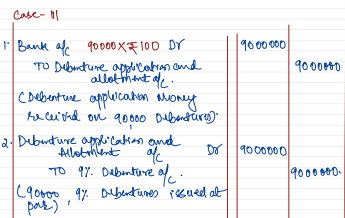 Case - III
1. Bank a/c 90000X₹100 Dr 9000000
To Debenture application and 9000000
allotment a/c.
(Debenture application Money
received on 90000 Debentures).
2. Debenture application and
Allotment a/c Dr 9000000
To 9% Debenture a/c. 9000000.
(90000, 9% Debentures issued at
par)